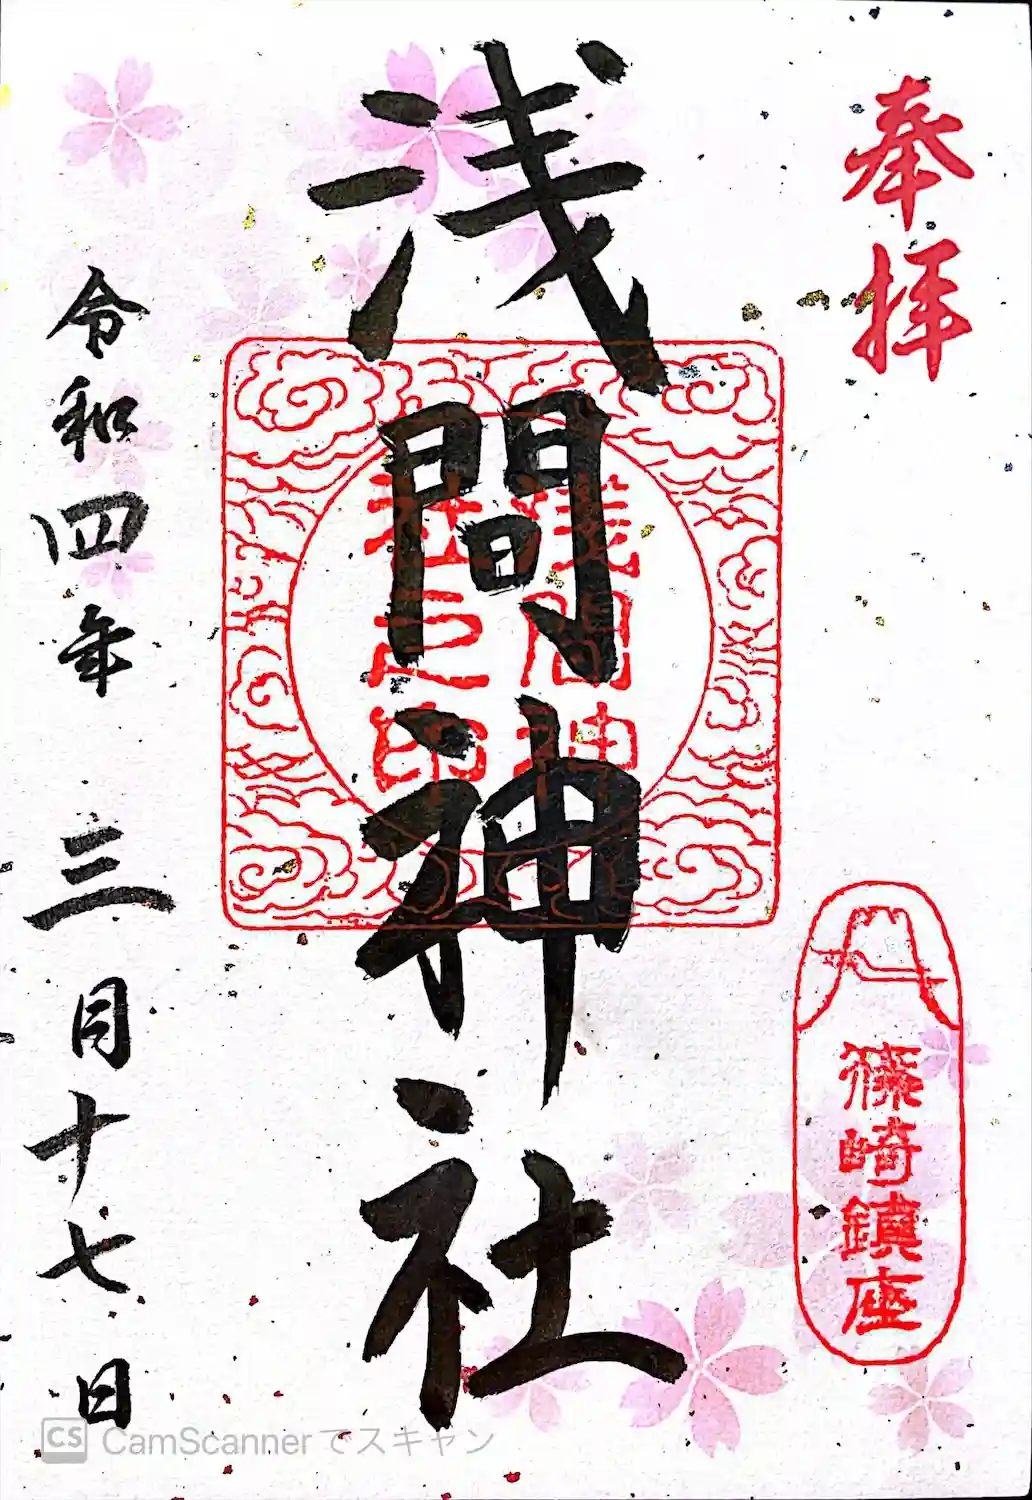 奉拝
浅間神社
淺間神
社之印
篠崎鎮座
令和四年 三月十七日
CS CamScannerでスキャン